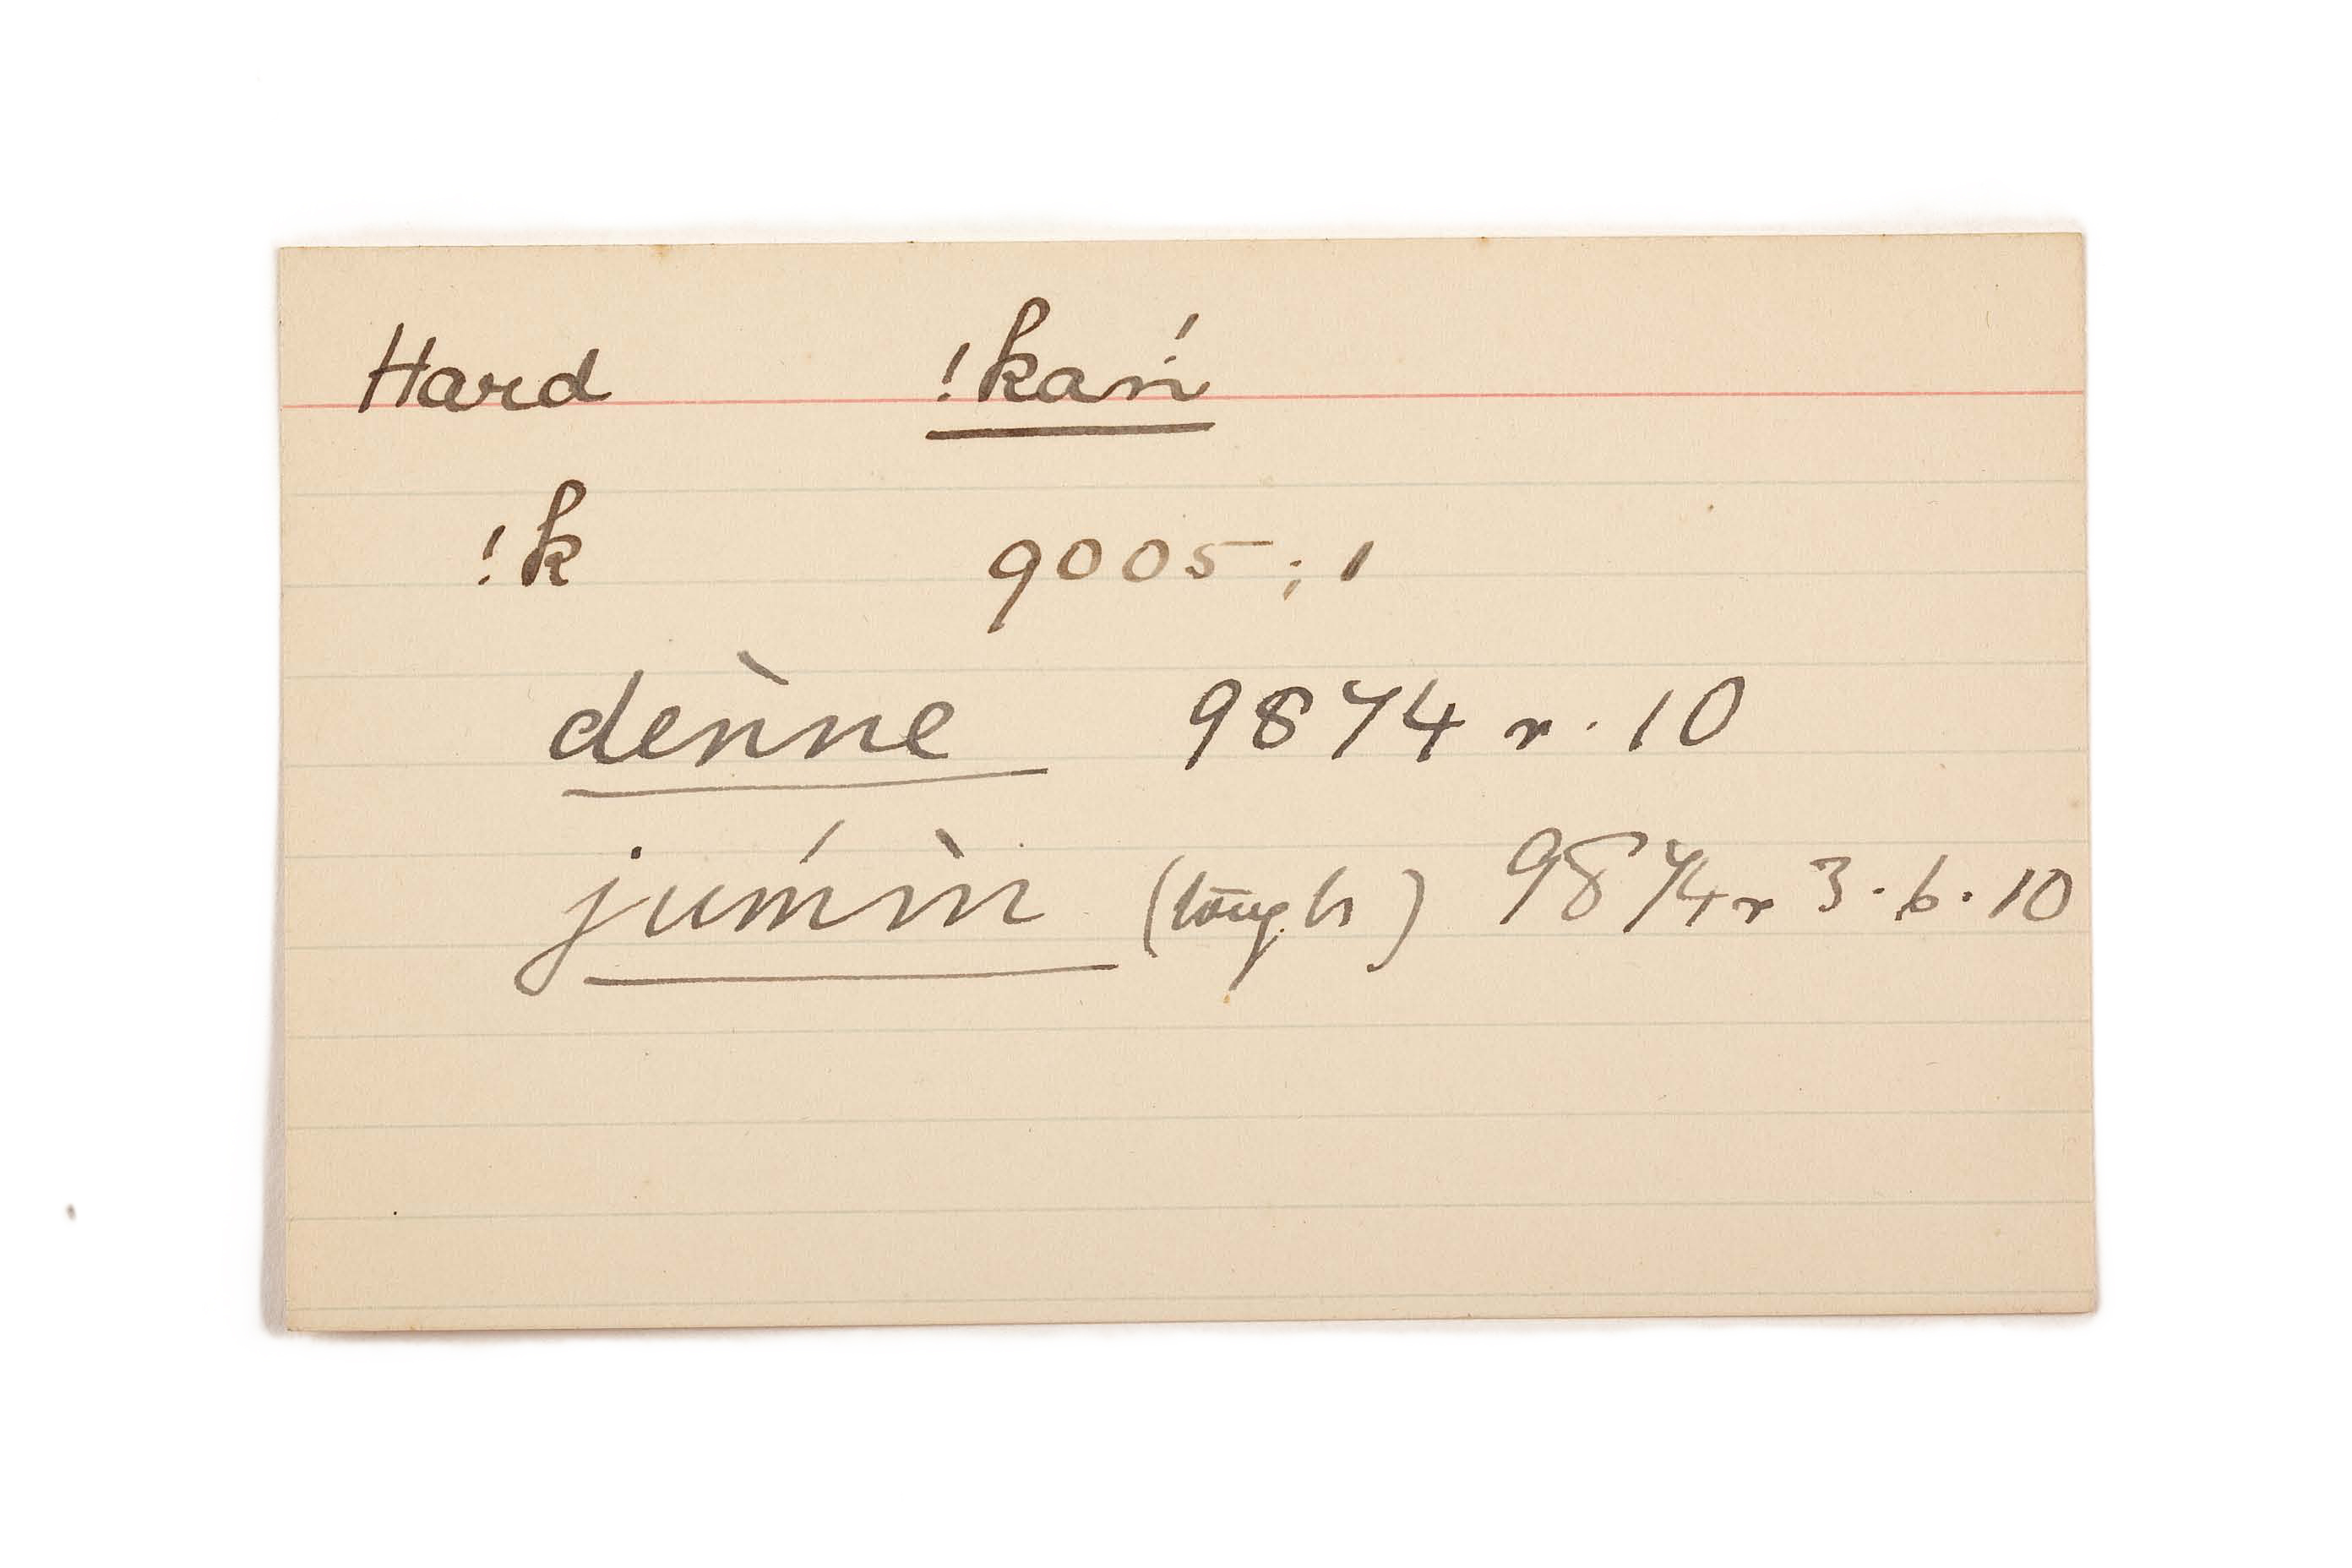 Hard !kań
!k 9005; 1
dènne 9874 r. 10
jumm̀ (tough) 9874 r 3. 6. 10